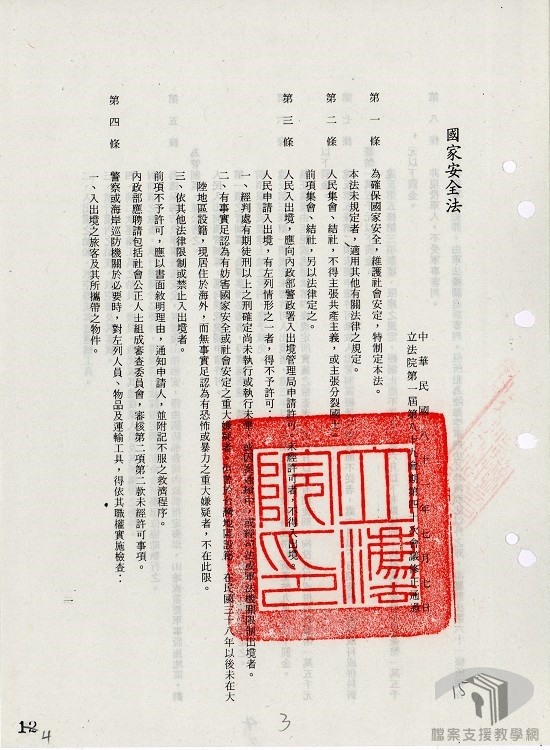 國家安全法
中華民國八十一年七月七日
立法院第一屆第八十九會期第四十次會議修正通過
第一條　為確保國家安全，維護社會安定，特制定本法。
本法未規定者，適用其他有關法律之規定。
第二條　人民集會、結社，不得主張共產主義，或主張分裂國土。
前項集會、結社，另以法律定之。
第三條　人民入出境，應向內政部警政署入出境管理局申請許可。未經許可者，不得入出境。
人民申請入出境，有左列情形之一者，得不予許可：
一、經判處有期徒刑以上之刑確定尚未執行或執行未畢，或因案通緝中，或經司法或軍法機關限制出境者。
二、有事實足認為有妨害國家安全或社會安定之重大嫌疑者。但曾於台灣地區設籍，在民國三十八年以後未在大
陸地區設籍，現居住於海外，而無事實足認為有恐怖或暴力之重大嫌疑者，不在此限。
三、依其他法律限制或禁止入出境者。
前項不予許可，應以書面敘明理由，通知申請人，並附記不服之救濟程序。
內政部應聘請包括社會公正人士組成審查委員會，審核第二項第二款未經許可事項。
第四條　警察或海岸巡防機關於必要時，對左列人員、物品及運輸工具，得依其職權實施檢查：
一、入出境之旅客及其所攜帶之物件。
一
立法院印
15
3
12
4
檔案支援教學網